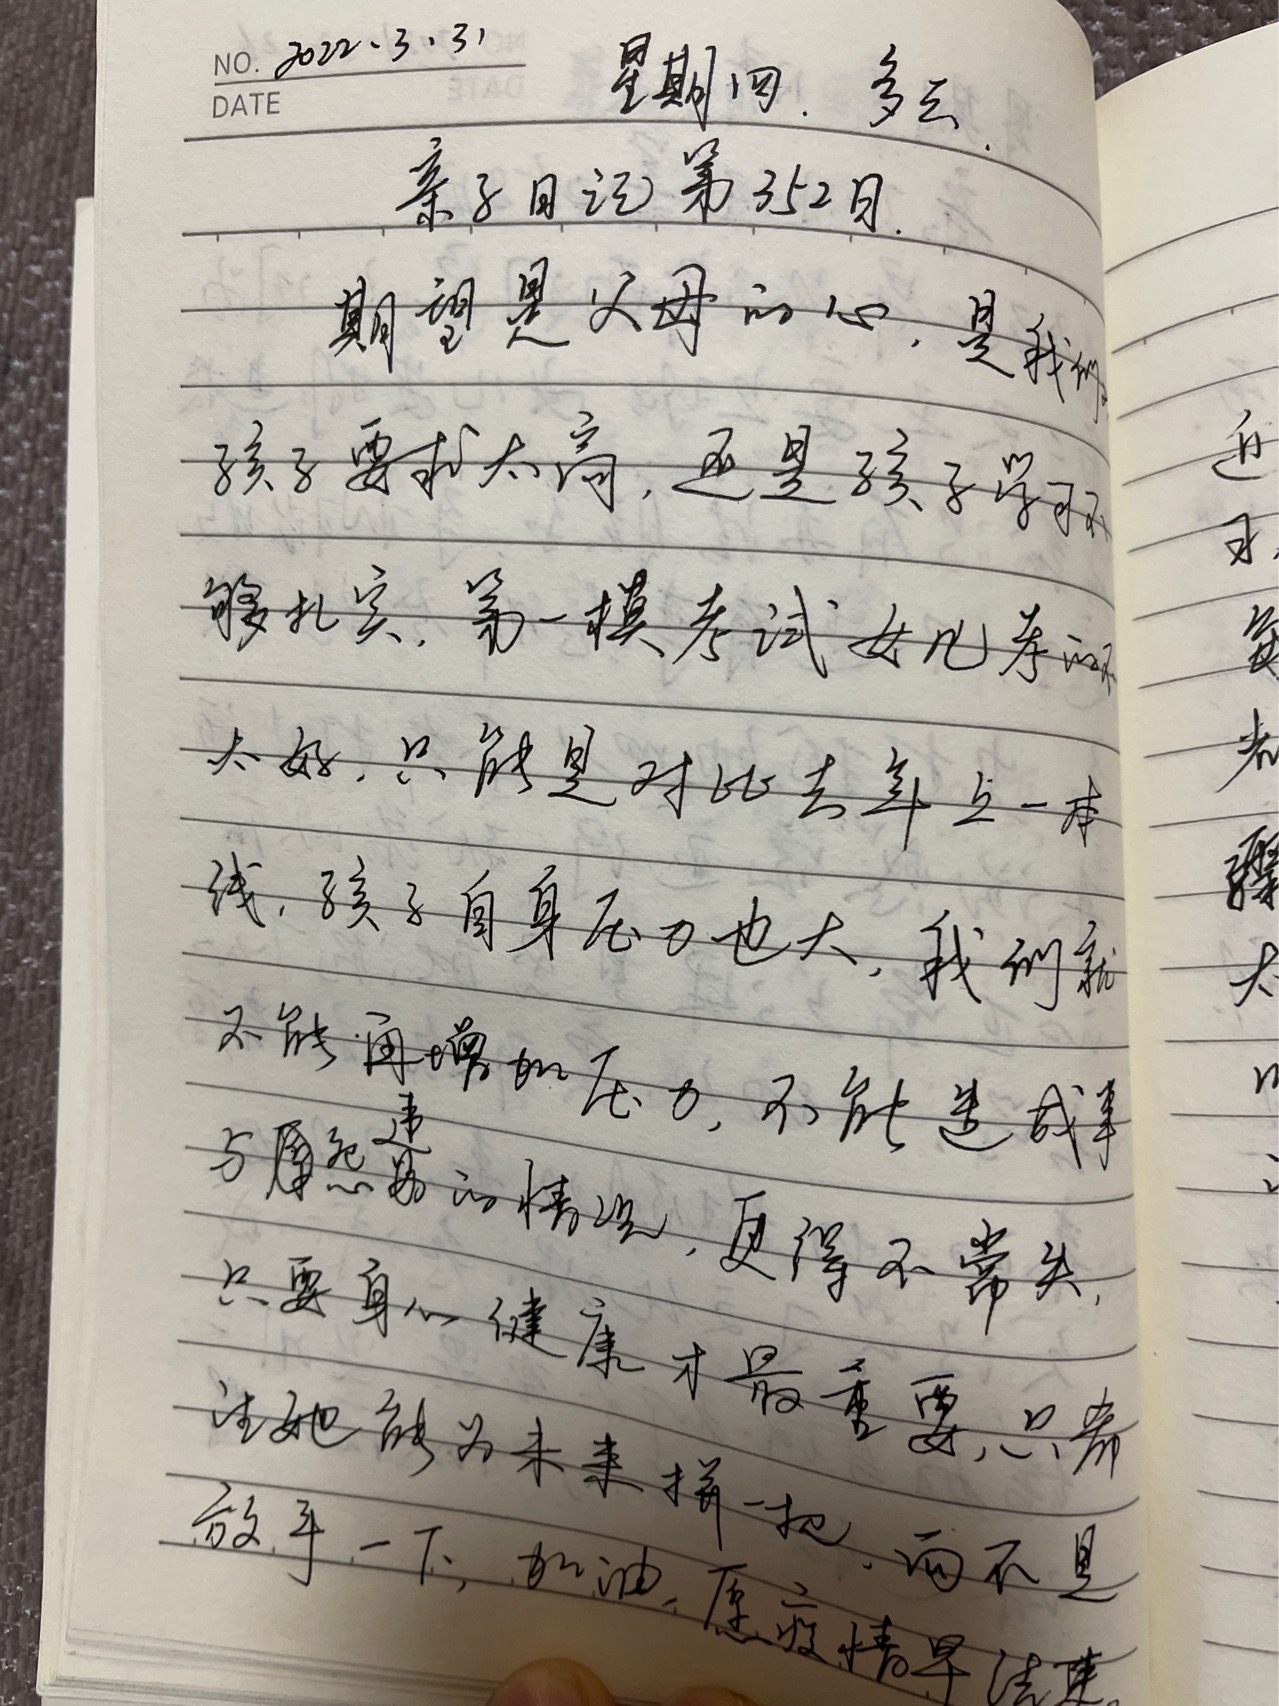 NO. 2022.3.31
DATE
星期四. 多云.
亲子日记第352日.
期望是父母的心, 是我们
孩子要求太高, 还是孩子学习不
够扎实, 第一模考试女儿考的不
太好, 只能是对比去年上一本
线, 孩子自身压力也大, 我们就
不能再增加压力, 不能造成事
与愿违的情况, 更得不常失,
只要身心健康才最重要, 只希
让她能为未来拼一把, 而不是
放手一下, 加油, 愿疫情早结束。
近
习.
太